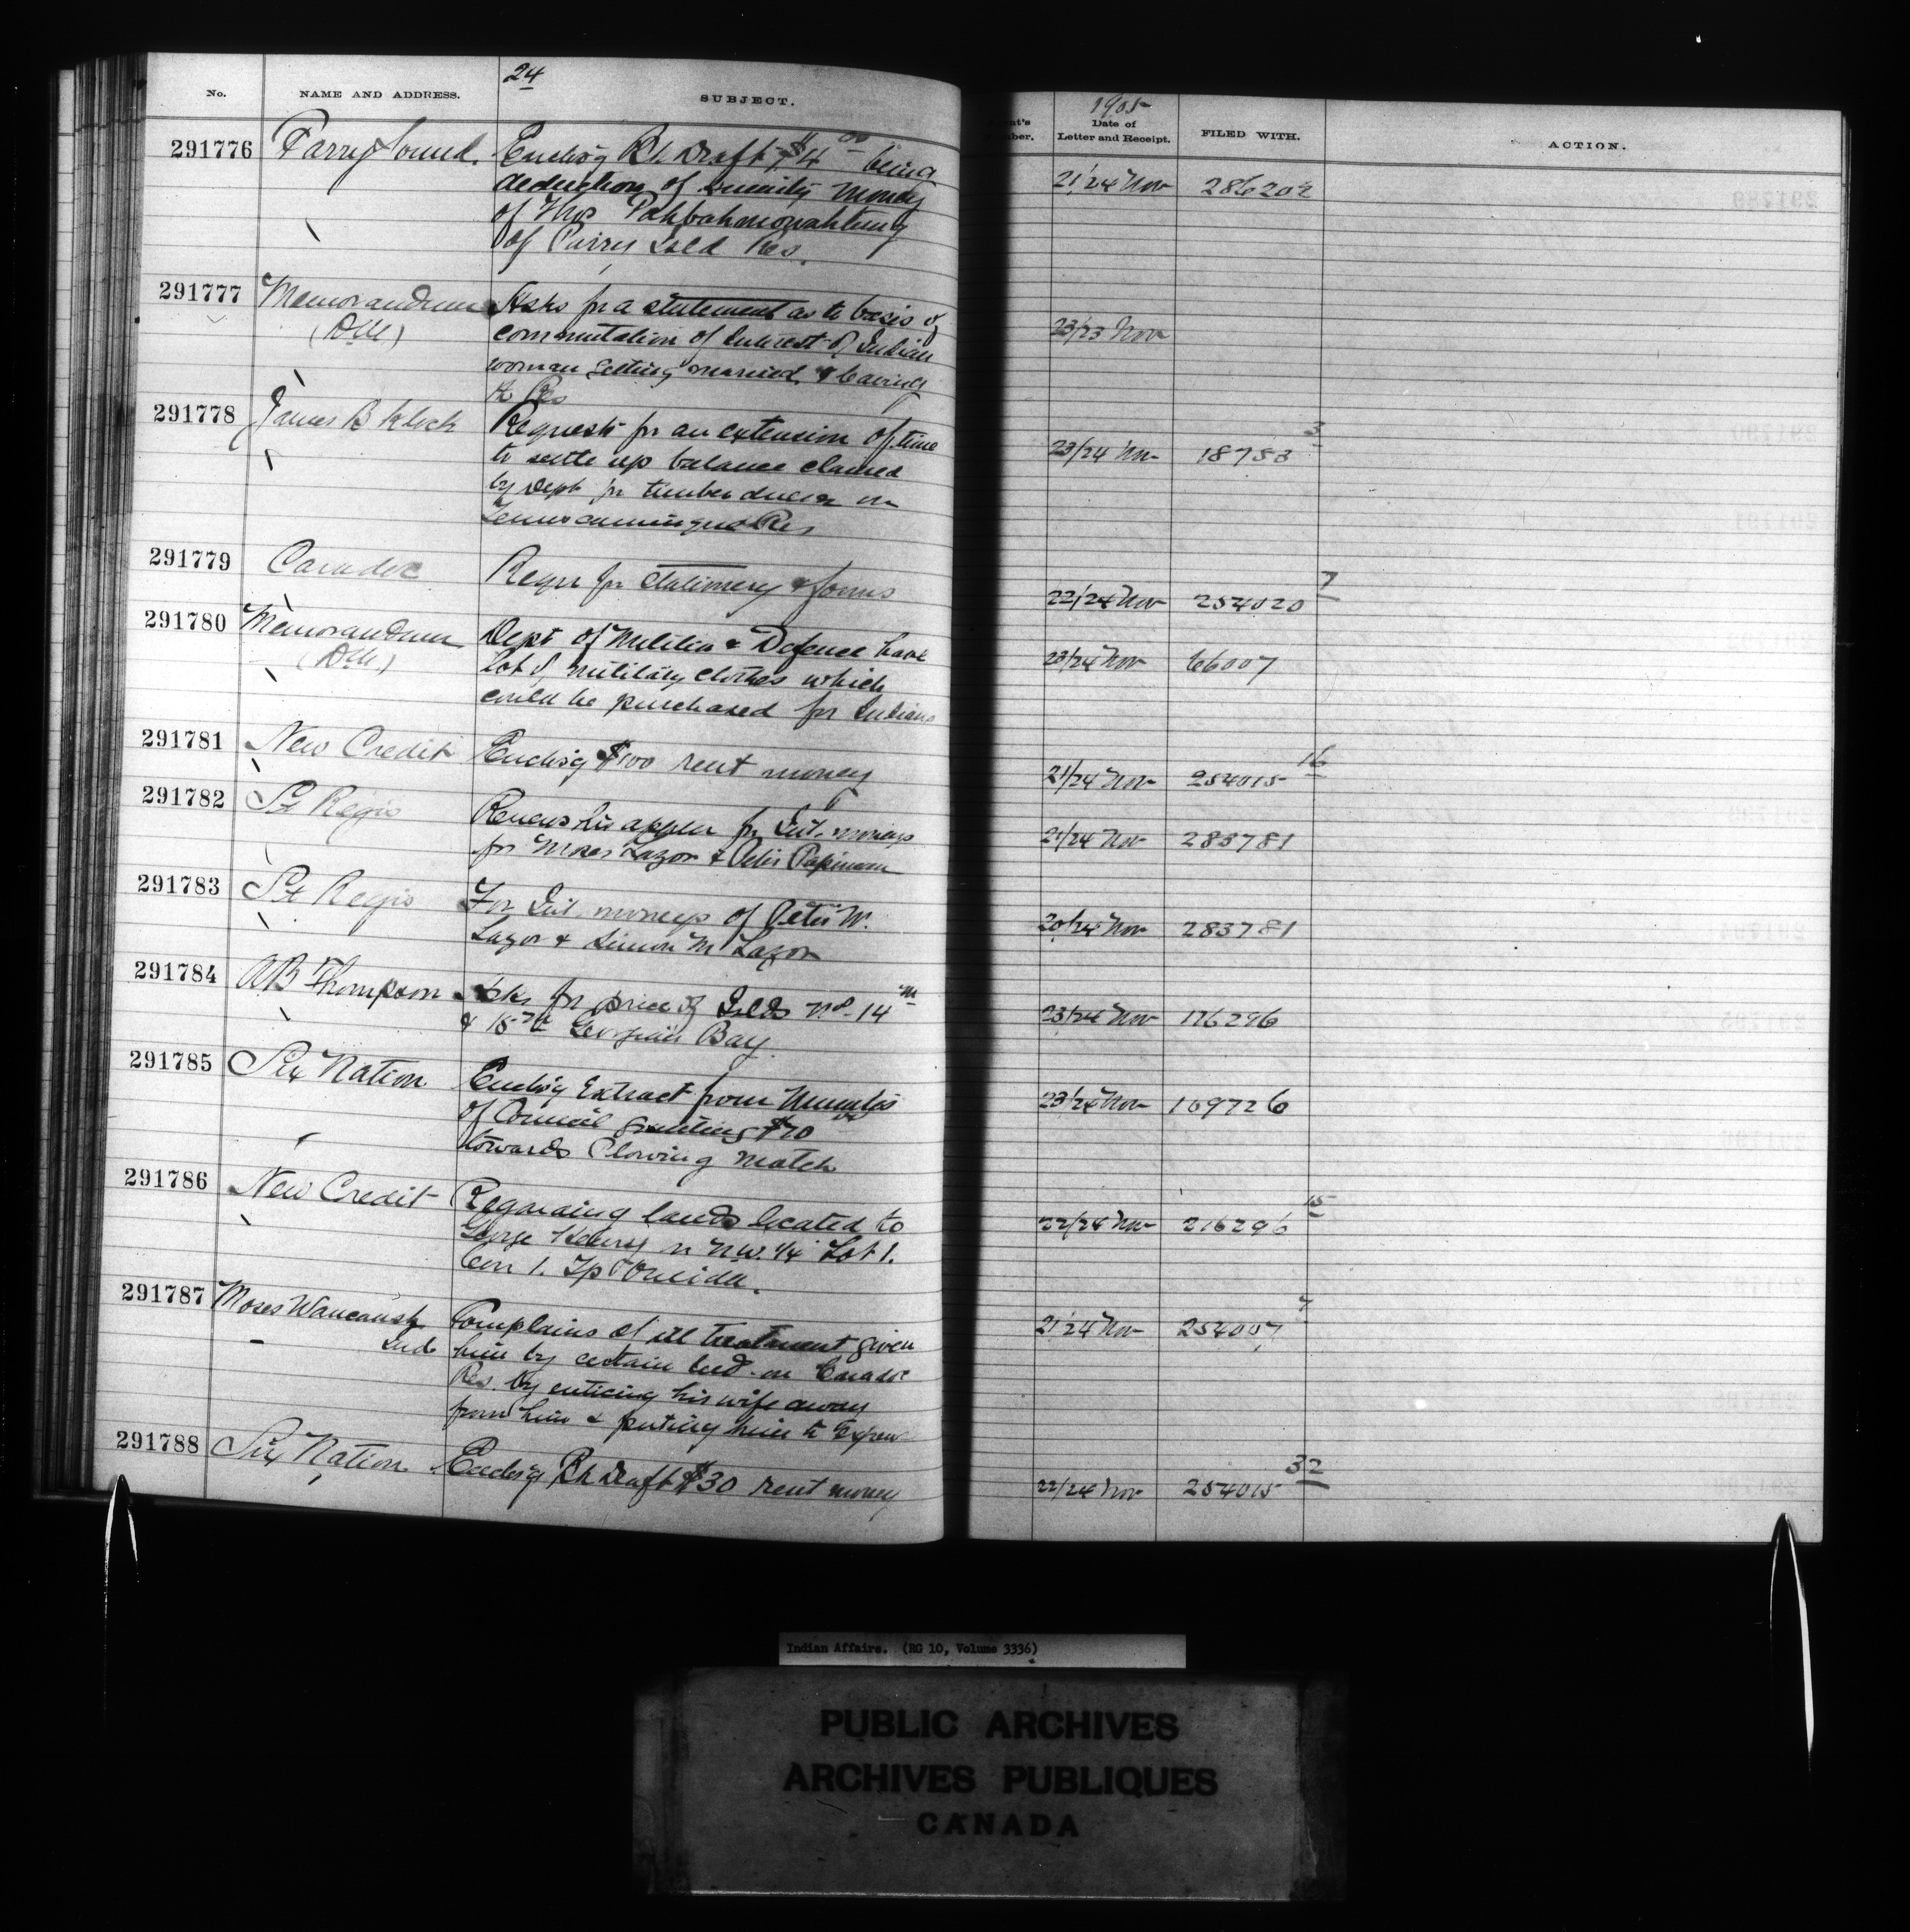 24
1905
No. NAME AND ADDRESS. SUBJECT. Date of Letter and Receipt. FILED WITH. ACTION.
291776 Parry Sound. Enclos'g Bk Draft $4 00 being 21/24 Nov 286202
deduction of annuity money
of Thos Pahbahmowahtung
of Parry Isld Res.
291777 Memorandum Asks for a statement as to basis of 23/23 Nov
(DM) commutation of Interest of Indian
woman getting married & leaving
the Res
291778 James B Klock Requests for an extension of time 23/24 Nov 18783 3
to settle up balance claimed
by Dept for timber dues on
Res
291779 Caradoc Requr for Stationery & forms 22/24 Nov 254020 7
291780 Memorandum Dept of Militia & Defence have 23/24 Nov 66007
(DM) lot of military clothes which
could be purchased for Indians
291781 New Credit Enclos'g $100 rent money 21/24 Nov 254015 16
291782 St Regis Renews his appln for Int. moneys 21/24 Nov 283781
for Moses Lazor & Peter Papineau
291783 St Regis For Int. moneys of Peter W. 20/24 Nov 283781
Lazor & Simon M Lazor
291784 AB Thompson Asks for price of Islds No. 14 m 23/24 Nov 176296
& 15 Georgian Bay
291785 Six Nation Enclos'g Extract from Minutes 23/24 Nov 169726
of Council granting $70
towards Plowing Match
291786 New Credit Regarding lands located to 22/24 Nov 216296 15
George Henry n N.W. 1/4 Lot 1.
Con 1. Tp Oneida.
291787 Moses Waucaush Complains of ill treatment given 21/24 Nov 254007 7
Ind him by certain Ind. on Caradoc
Res. by enticing his wife away
from him & putting him to Expense
291788 Six Nation Enclos'g Bk Draft $30 rent money 22/24 Nov 254015 32
Indian Affairs. (RG 10, Volume 3336)
PUBLIC ARCHIVES
ARCHIVES PUBLIQUES
CANADA